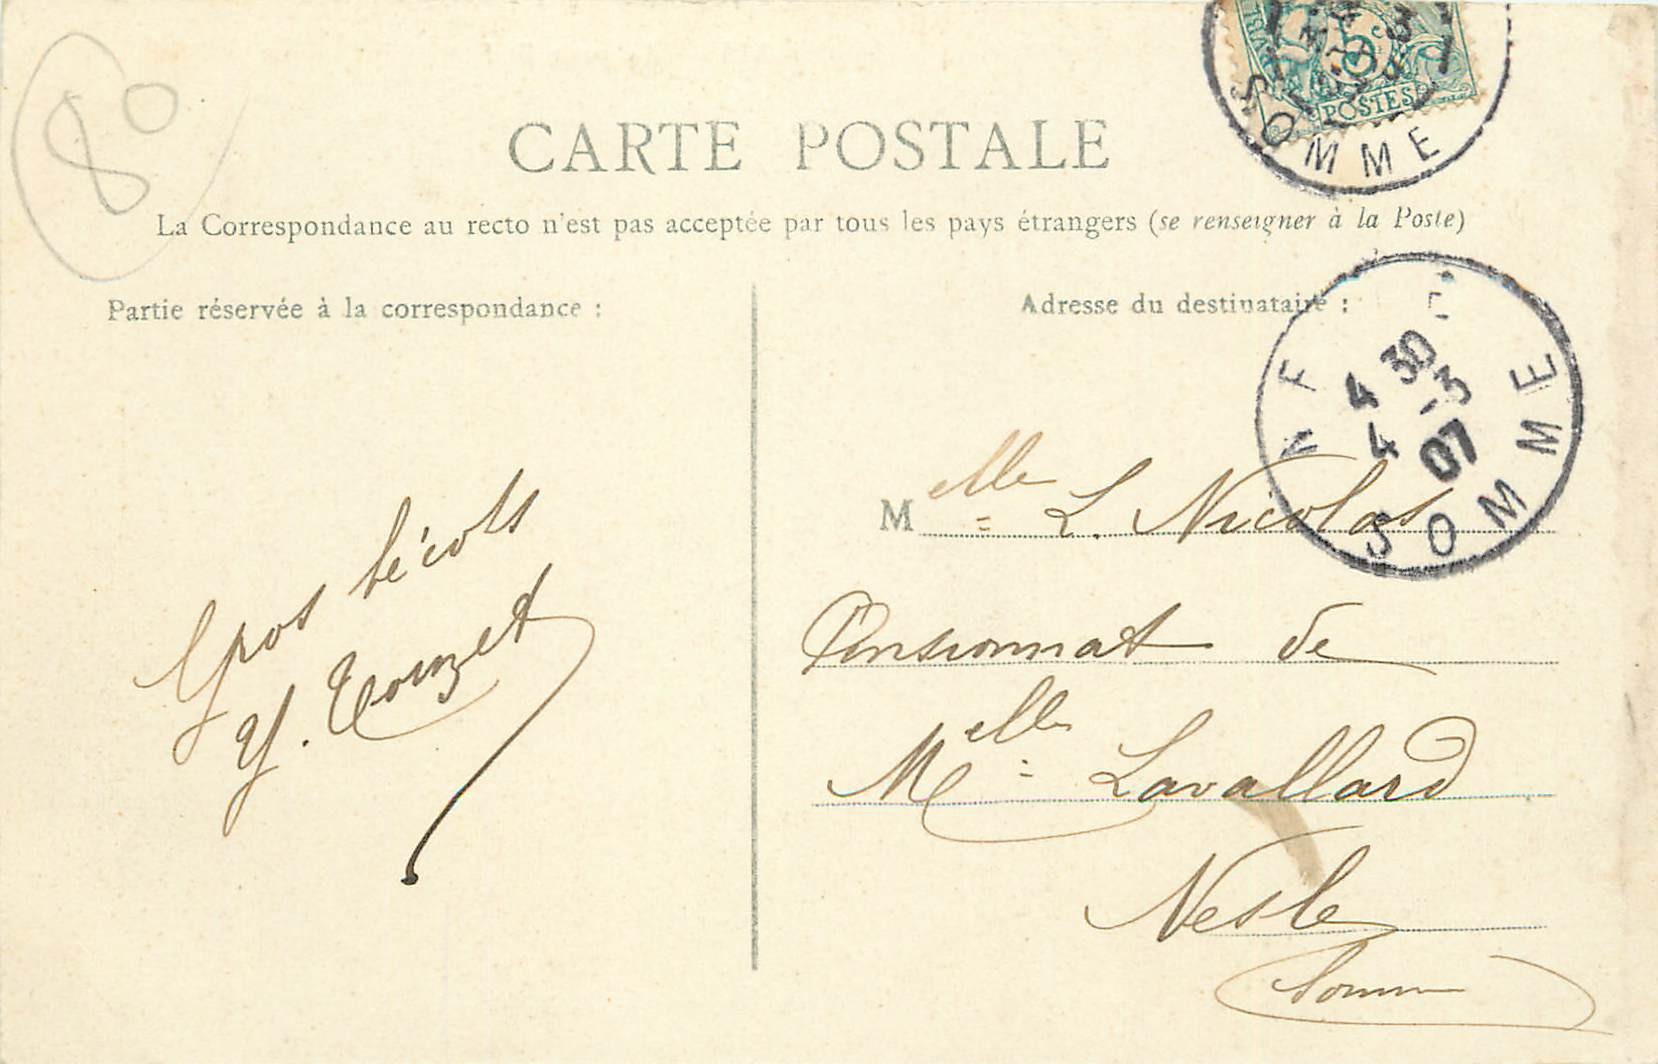 80
5c
POSTES
SOMME
CARTE POSTALE
La Correspondance au recto n'est pas acceptée par tous les pays étrangers (se renseigner à la Poste)
Partie réservée à la correspondance :
Adresse du destinataire :
4 30
4 -3
07
SOMME
Melle L. Nicolas
Pensionnat de
Melle Lavallard
Nesle
Somme
Gros bécots
Y. Touzet